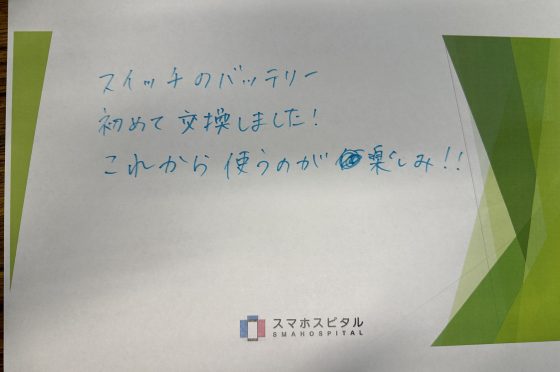 スイッチのバッテリー
初めて交換しました!
これから使うのが楽しみ!!
スマホスピタル
SMAHOSPITAL